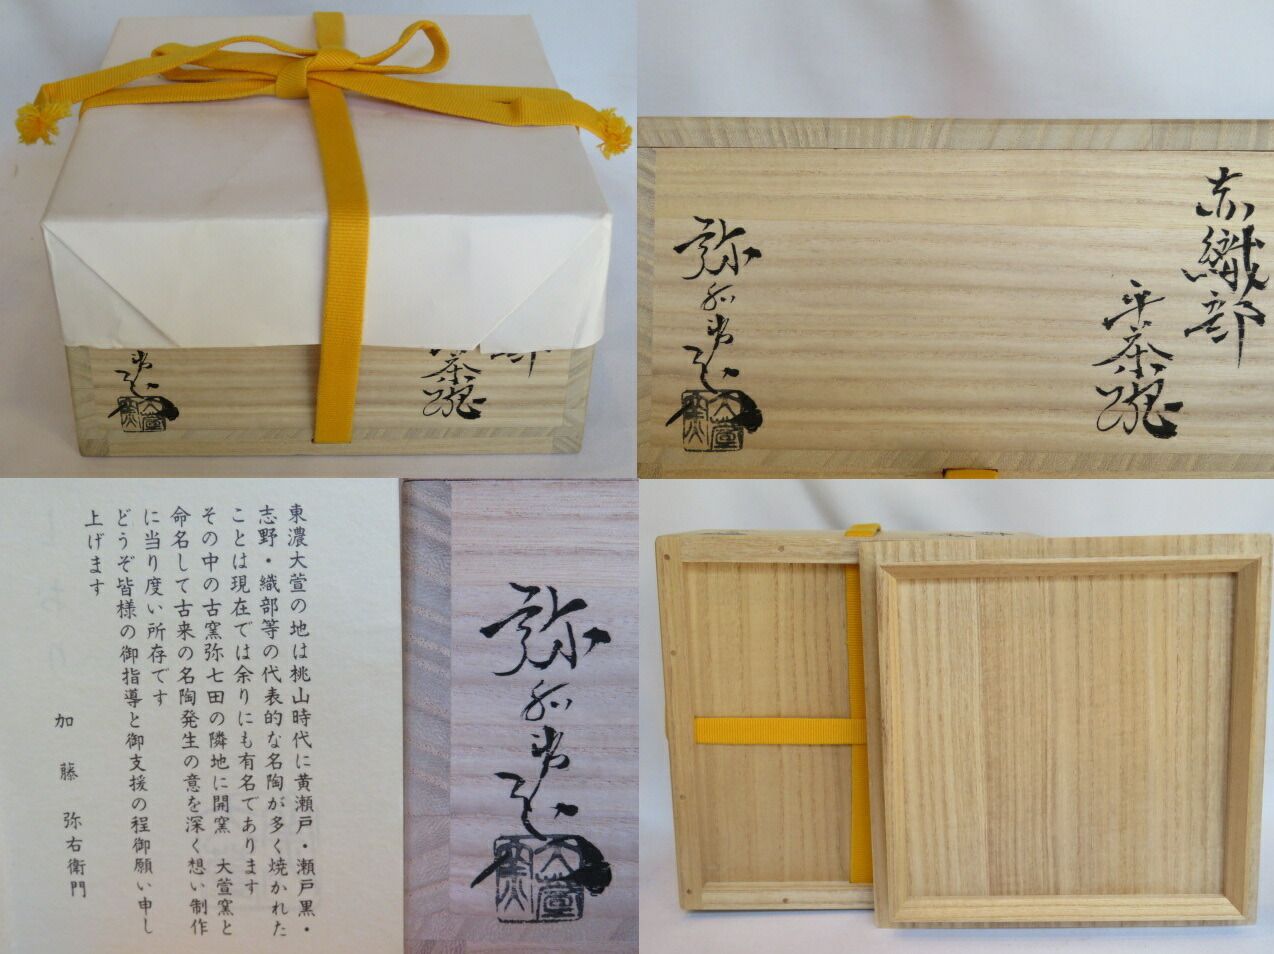 茶碗
大萱窯
赤織部
平茶碗
弥右衛門
大萱窯
東濃大萱の地は桃山時代に黄瀬戸・瀬戸黒・
志野・織部等の代表的な名陶が多く焼かれた
ことは現在では余りにも有名であります
その中の古窯弥七田の隣地に開窯 大萱窯と
命名して古来の名陶発生の意を深く想い制作
に当り度い所存です
どうぞ皆様の御指導と御支援の程御願い申し
上げます
加藤 弥右衛門
弥右衛門
大萱窯